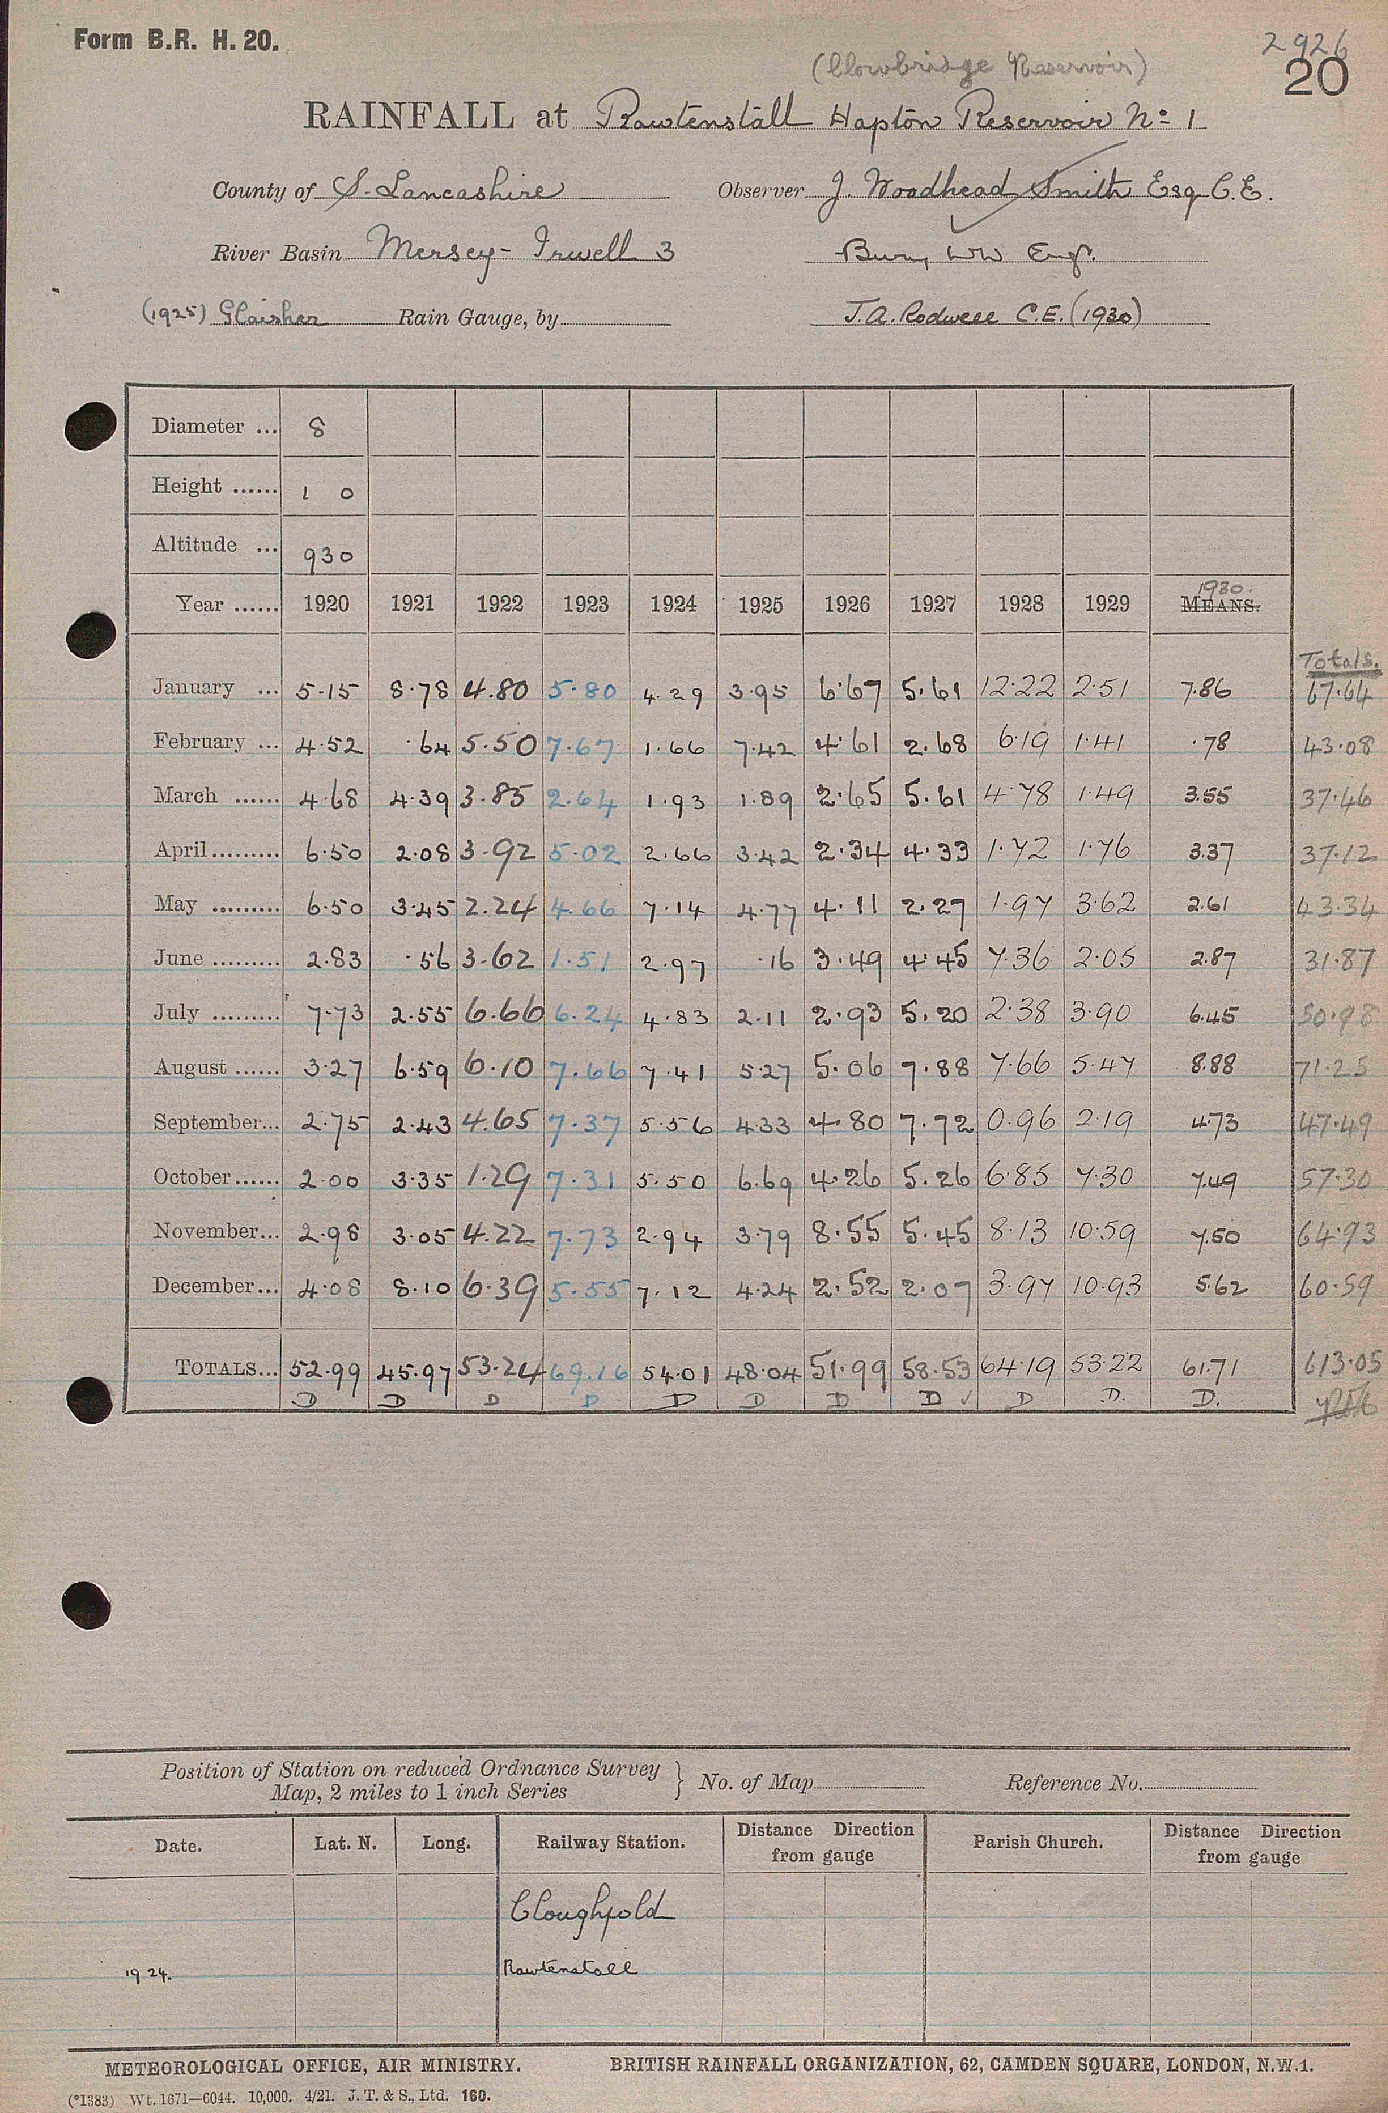 Form B.R. H. 20.
2926
20
(Clowbridge Reservoir)
RAINFALL at Rawtenstall Hapton Reservoir No 1
County of S. Lancashire Observer J. Woodhead Smith Esq C.E.
River Basin Mersey - Irwell 3 Bury WW Engr.
(1925) Glaisher Rain Gauge, by J.A. Rodwell C.E. (1930)
Diameter ... 8
Height ...... 1 0
Altitude ... 930
1930.
Year ...... 1920 1921 1922 1923 1924 1925 1926 1927 1928 1929 MEANS.
Totals.
January ... 5.15 8.78 4.80 5.80 4.29 3.95 6.67 5.61 12.22 2.51 7.86 67.64
February ... 4.52 .64 5.50 7.67 1.66 7.42 4.61 2.68 6.19 1.41 .78 43.08
March ...... 4.68 4.39 3.85 2.64 1.93 1.89 2.65 5.61 4.78 1.49 3.55 37.46
April ......... 6.50 2.08 3.92 5.02 2.66 3.42 2.34 4.33 1.72 1.76 3.37 37.12
May ......... 6.50 3.45 2.24 4.66 7.14 4.77 4.11 2.27 1.97 3.62 2.61 43.34
June ......... 2.83 .56 3.62 1.51 2.97 .16 3.49 4.45 7.36 2.05 2.87 31.87
July ......... 7.73 2.55 6.66 6.24 4.83 2.11 2.93 5.20 2.38 3.90 6.45 50.98
August ...... 3.27 6.59 6.10 7.66 7.41 5.27 5.06 7.88 7.66 5.47 8.88 71.25
September... 2.75 2.43 4.65 7.37 5.56 4.33 4.80 7.72 0.96 2.19 4.73 47.49
October...... 2.00 3.35 1.29 7.31 5.50 6.69 4.26 5.26 6.85 7.30 7.49 57.30
November... 2.98 3.05 4.22 7.73 2.94 3.79 8.55 5.45 8.13 10.59 7.50 64.93
December... 4.08 8.10 6.39 5.55 7.12 4.24 2.52 2.07 3.97 10.93 5.62 60.59
TOTALS... 52.99 45.97 53.24 69.16 54.01 48.04 51.99 58.53 64.19 53.22 61.71 613.05
D D D D D D D D ✓ D D. D.
Position of Station on reduced Ordnance Survey
Map, 2 miles to 1 inch Series } No. of Map Reference No.
Date. Lat. N. Long. Railway Station. Distance Direction from gauge Parish Church. Distance Direction from gauge
Cloughfold
1924. Rawtenstall
METEOROLOGICAL OFFICE, AIR MINISTRY. BRITISH RAINFALL ORGANIZATION, 62, CAMDEN SQUARE, LONDON, N.W.1.
(*1383) Wt. 1671—6044. 10,000. 4/21. J. T. & S., Ltd. 160.